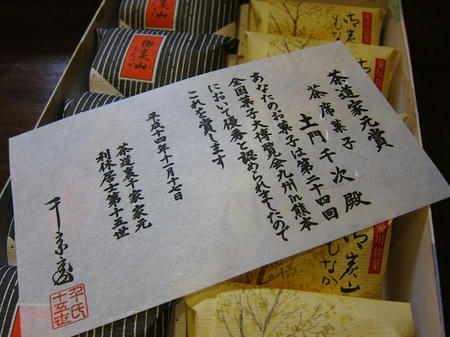 茶道家元賞
茶席菓子
土門千次殿
あなたのお菓子は第二十四回
全国菓子大博覧会九州in熊本
において優秀と認められましたので
これを賞します
平成十四年十一月十七日
茶道裏千家家元
利休居士第十五世
千宗室
御炭山
もなか
御炭山
もなか